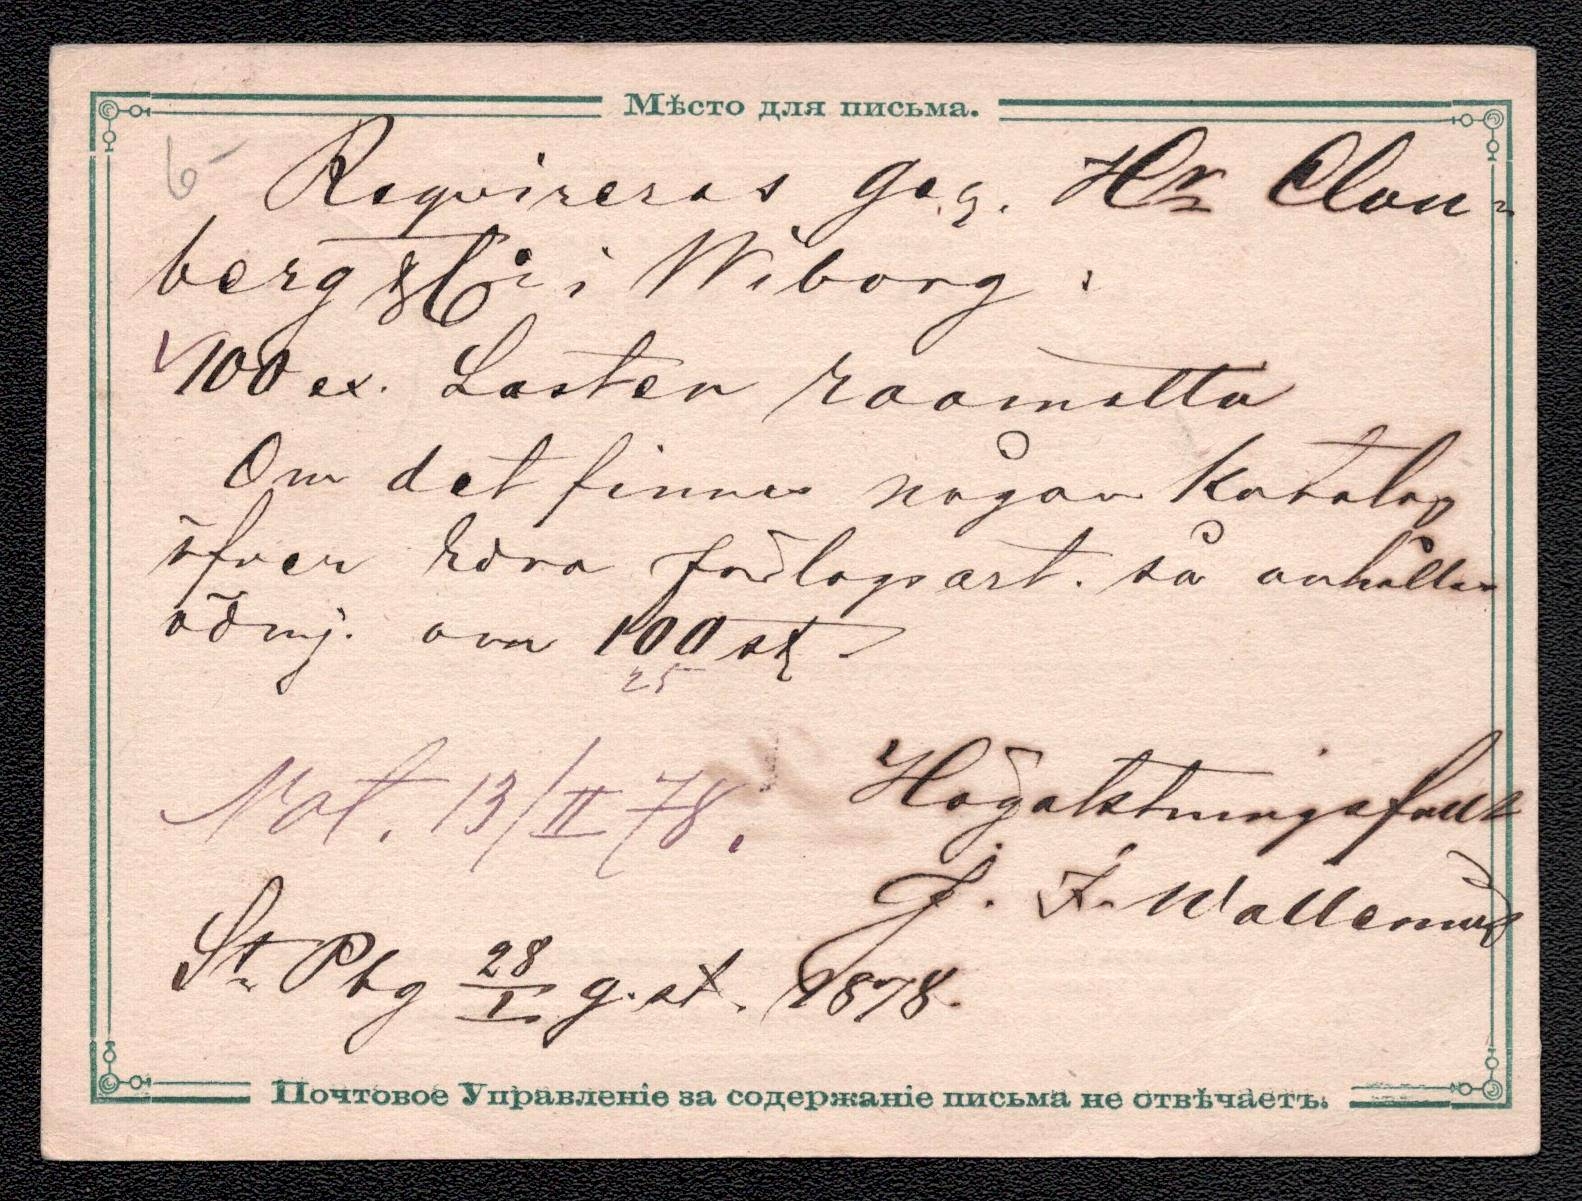 Мѣсто для письма.
6-
Reqvireras gag. Hr Clou-
berg & Co i Wiborg:
100 ex. Lasten raamattu
Om det finnes någon Katalog
öfver Edra förlagsart. så anhålles
ödmj. om 100 st
25
Not. 13/II 78.
Högaktningsfullt
J. F. Wallenius
St. Pbg 28/I g. st. 1878.
Почтовое Управленіе за содержаніе письма не отвѣчаетъ.